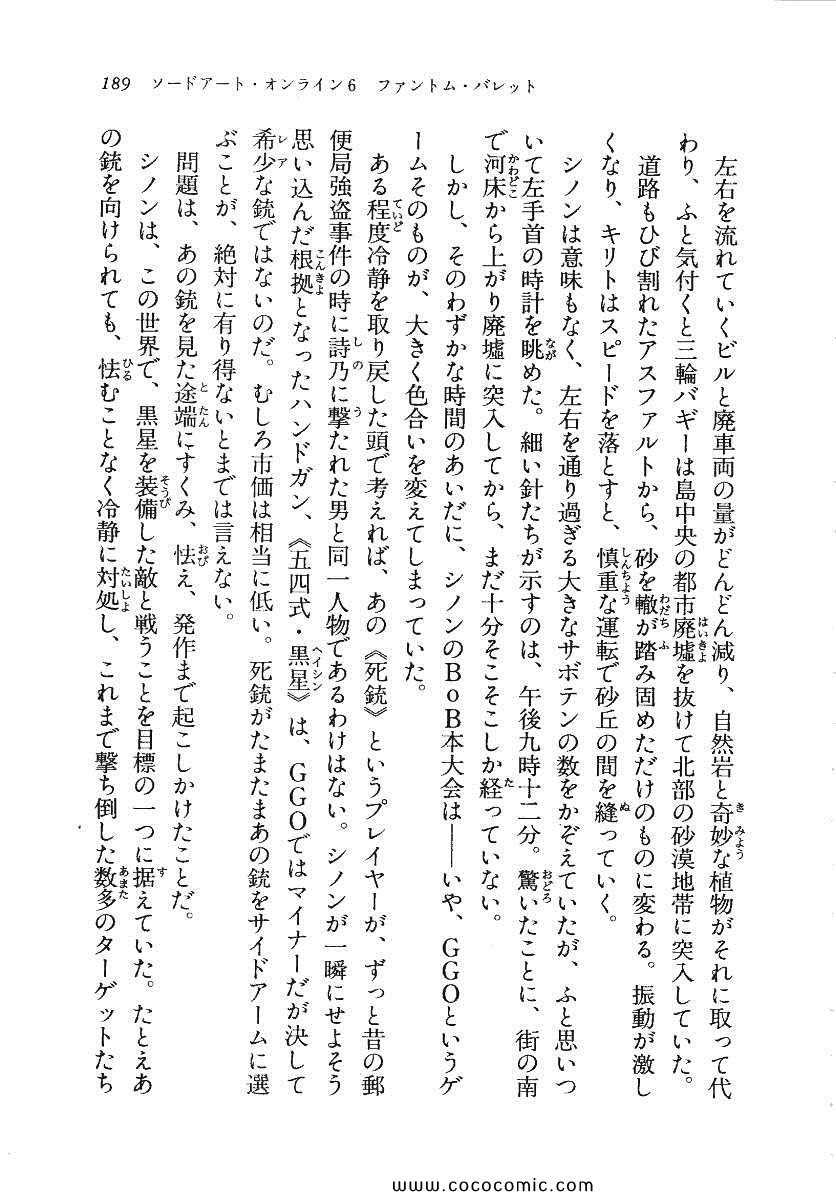 189 ソードアート・オンライン6 ファントム・バレット
左右を流れていくビルと廃車両の量がどんどん減り、自然岩と奇妙な植物がそれに取って代
わり、ふと気付くと三輪バギーは島中央の都市廃墟を抜けて北部の砂漠地帯に突入していた。
道路もひび割れたアスファルトから、砂を轍が踏み固めただけのものに変わる。振動が激し
くなり、キリトはスピードを落とすと、慎重な運転で砂丘の間を縫っていく。
シノンは意味もなく、左右を通り過ぎる大きなサボテンの数をかぞえていたが、ふと思いつ
いて左手首の時計を眺めた。細い針たちが示すのは、午後九時十二分。驚いたことに、街の南
で河床から上がり廃墟に突入してから、まだ十分そこそこしか経っていない。
しかし、そのわずかな時間のあいだに、シノンのBoB本大会は――いや、GGOというゲ
ームそのものが、大きく色合いを変えてしまっていた。
ある程度冷静を取り戻した頭で考えれば、あの《死銃》というプレイヤーが、ずっと昔の郵
便局強盗事件の時に詩乃に撃たれた男と同一人物であるわけはない。シノンが一瞬にせよそう
思い込んだ根拠となったハンドガン、《五四式・黒星》は、GGOではマイナーだが決して
希少な銃ではないのだ。むしろ市価は相当に低い。死銃がたまたまあの銃をサイドアームに選
ぶことが、絶対に有り得ないとまでは言えない。
問題は、あの銃を見た途端にすくみ、怯え、発作まで起こしかけたことだ。
シノンは、この世界で、黒星を装備した敵と戦うことを目標の一つに据えていた。たとえあ
の銃を向けられても、怯むことなく冷静に対処し、これまで撃ち倒した数多のターゲットたち
www.cococomic.com